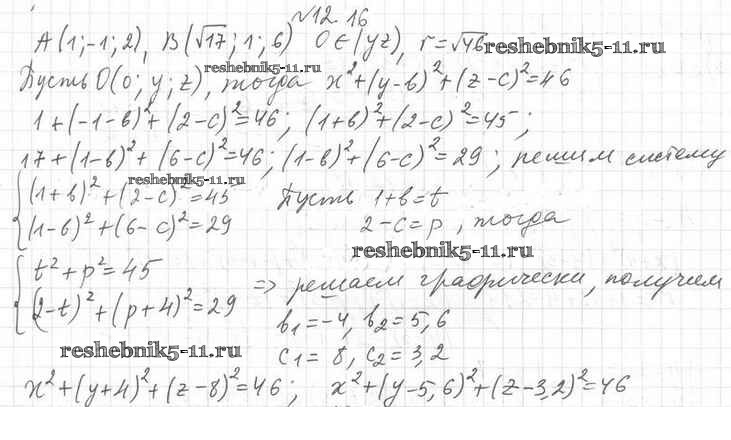 №12.16
A(1;-1;2), B(√17; 1; 6) O∈(yz), r=√46 reshebnik5-11.ru
reshebnik5-11.ru
Пусть O(0; y; z), тогда x²+(y-b)²+(z-c)²=46
1+(-1-b)²+(2-c)²=46; (1+b)²+(2-c)²=45;
17+(1-b)²+(6-c)²=46; (1-b)²+(6-c)²=29; решим систему
reshebnik5-11.ru
{(1+b)²+(2-c)²=45 Пусть 1+b=t
(1-b)²+(6-c)²=29 2-c=p, тогда
reshebnik5-11.ru
{t²+p²=45
(2-t)²+(p+4)²=29 => решаем графически, получим
b₁=-4, b₂=5,6
reshebnik5-11.ru c₁=8, c₂=3,2
x²+(y+4)²+(z-8)²=46; x²+(y-5,6)²+(z-3,2)²=46